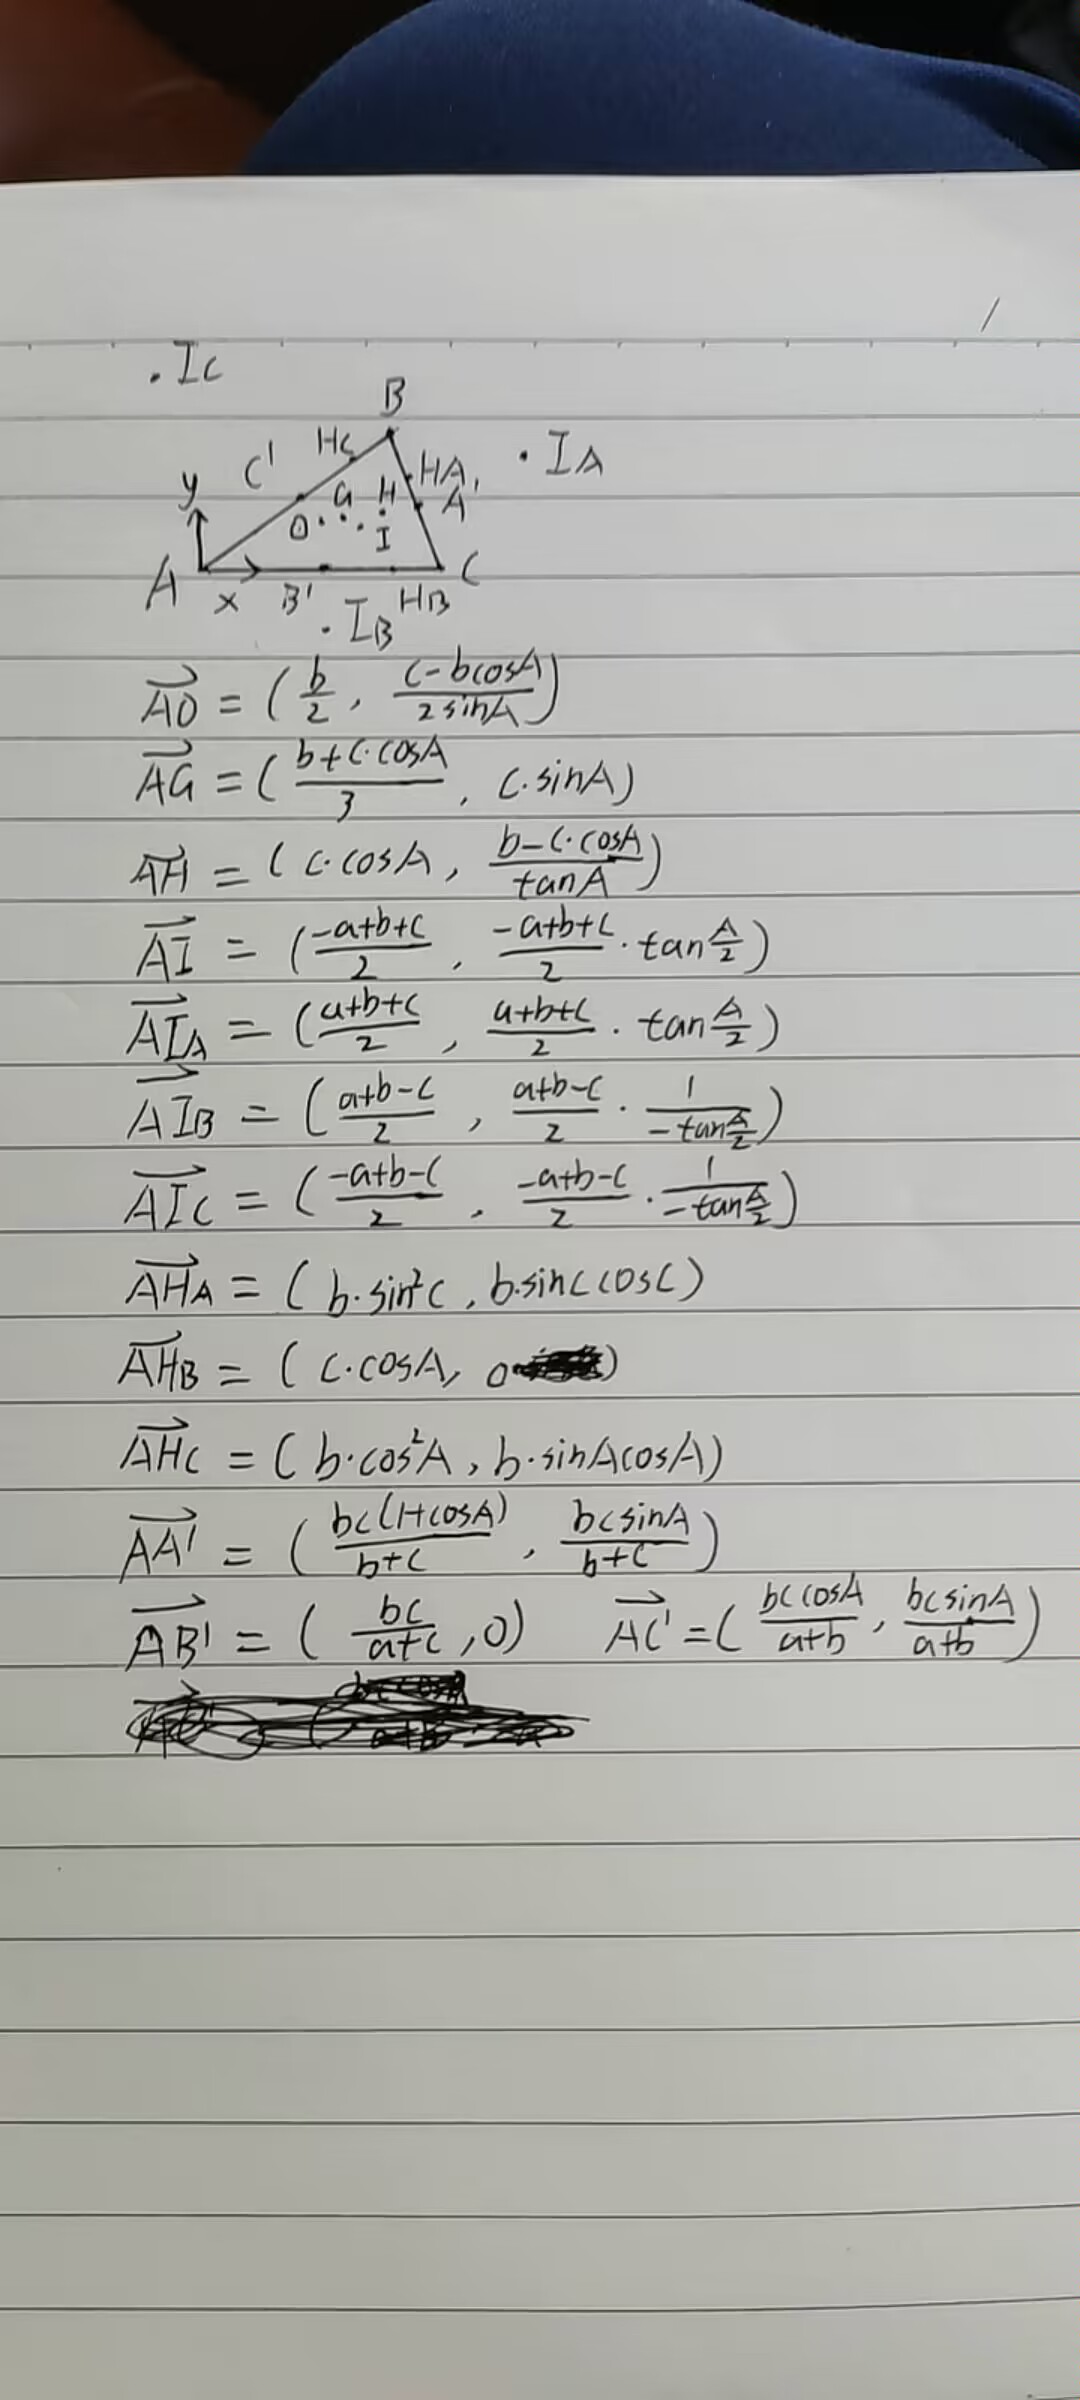 /
. Ic
B
Hc
C'
HA
. IA
y
G
H
A'
O
I
A
x
B'
HB
C
. IB
AO→ = (b/2, (c-bcosA)/(2sinA))
AG→ = ((b+c·cosA)/3, c·sinA)
AH→ = (c·cosA, (b-c·cosA)/tanA)
AI→ = ((-a+b+c)/2, (-a+b+c)/2 · tan A/2)
AIA→ = ((a+b+c)/2, (a+b+c)/2 · tan A/2)
AIB→ = ((a+b-c)/2, (a+b-c)/2 · 1/(-tan A/2))
AIC→ = ((-a+b-c)/2, (-a+b-c)/2 · 1/(-tan A/2))
AHA→ = (b·sin²C, b·sinCcosC)
AHB→ = (c·cosA, 0)
AHC→ = (b·cos²A, b·sinAcosA)
AA'→ = (bc(1+cosA)/(b+c), bcsinA/(b+c))
AB'→ = (bc/(a+c), 0) AC'→ = (bccosA/(a+b), bcsinA/(a+b))